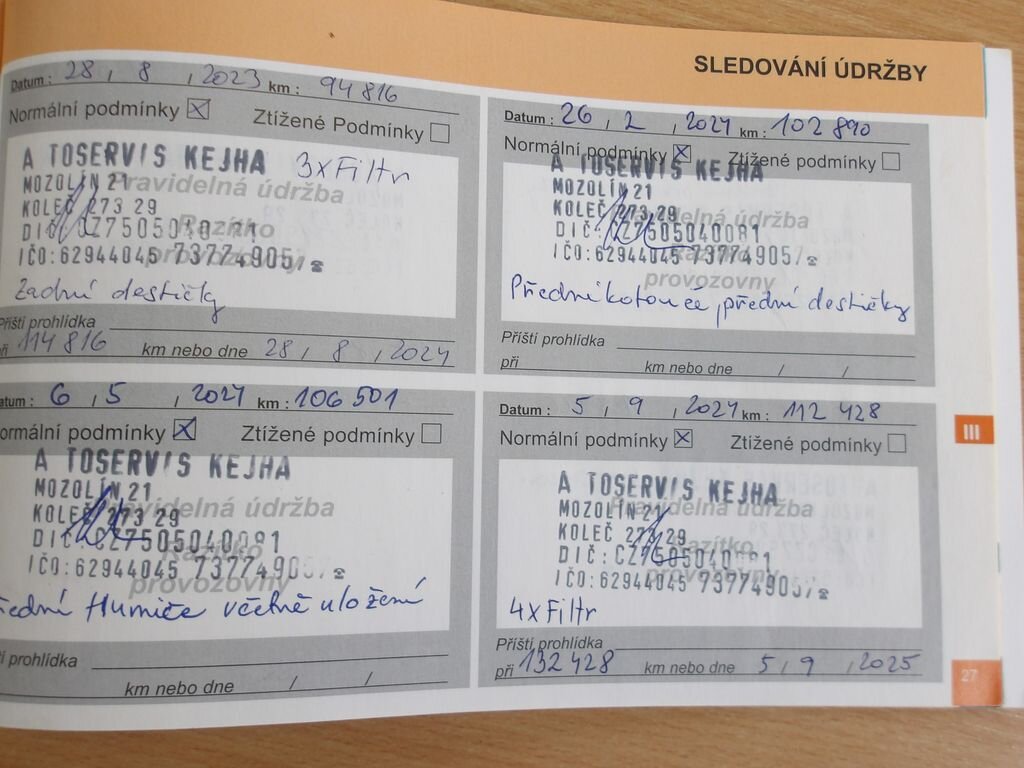 SLEDOVÁNÍ ÚDRŽBY
Datum : 28 / 8 / 2023 km : 94 816
Normální podmínky ☒ Ztížené Podmínky ☐
A TOSERVIS KEJHA 3xFiltr
MOZOLÍN 21 Pravidelná údržba
KOLEČ 273 29 Razítko
provozovny
IČO:62944045 73774905
Zadní destičky
Příští prohlídka
při 114 816 km nebo dne 28 / 8 / 2024
Datum : 26 / 2 / 2024 km : 102 890
Normální podmínky ☒ Ztížené podmínky ☐
A TOSERVIS KEJHA
MOZOLÍN 21
KOLEČ 273 29 údržba
DIČ: CZ7505040081
IČO:62944045 73774905
provozovny
Přední kotouče, přední destičky
Příští prohlídka
při km nebo dne / /
atum : 6 / 5 / 2024 km : 106 501
ormální podmínky ☒ Ztížené podmínky ☐
A TOSERVIS KEJHA
MOZOLÍN 21
Pravidelná údržba
KOLEČ 273 29
DIČ: CZ7505040081
IČO:62944045 73774905
provozovny
ední tlumiče včetně uložení
í prohlídka
km nebo dne / /
Datum : 5 / 9 / 2024 km : 112 428
Normální podmínky ☒ Ztížené podmínky ☐
A TOSERVIS KEJHA
MOZOLÍN 21 Pravidelná údržba
KOLEČ 273 29
Razítko
IČO:62944045 73774905
provozovny
4xFiltr
Příští prohlídka
při 132 428 km nebo dne 5 / 9 / 2025
III
27